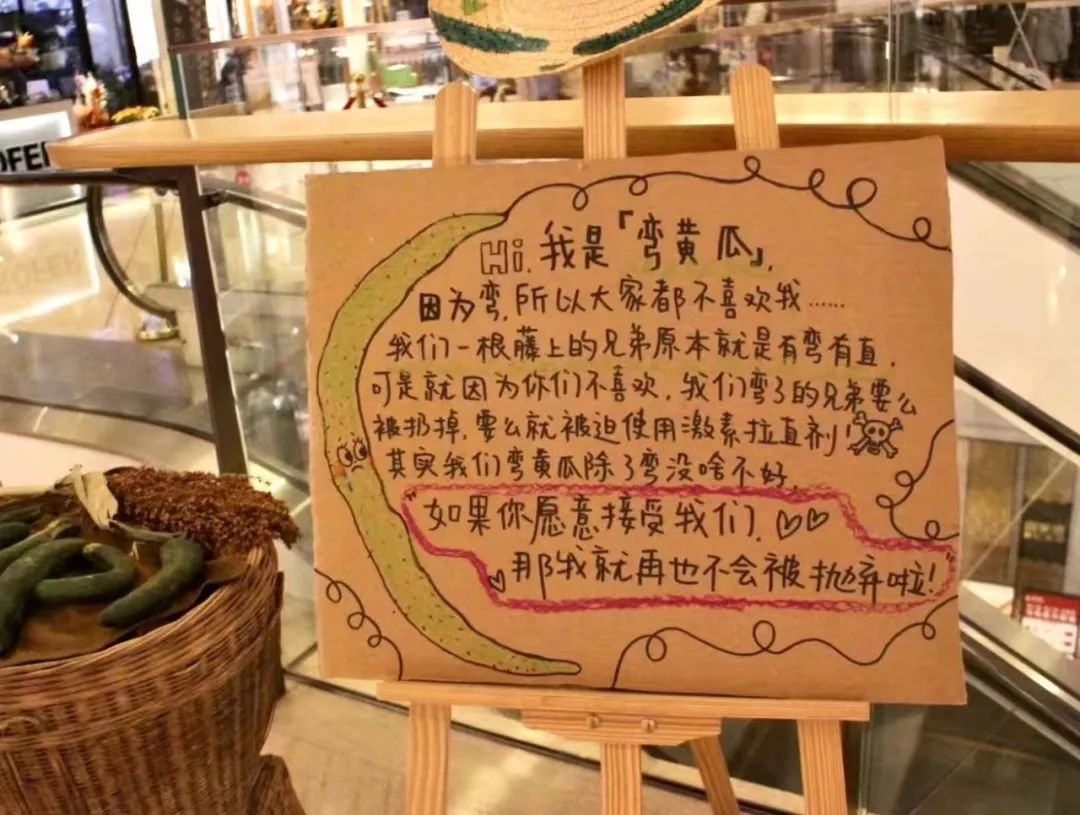 Hi.我是「弯黄瓜」.
因为弯,所以大家都不喜欢我……
我们一根藤上的兄弟原本就是有弯有直.
可是就因为你们不喜欢.我们弯了的兄弟要么
被扔掉.要么就被迫使用激素拉直剂!
其实我们弯黄瓜除了弯没啥不好.
"如果你愿意接受我们.
那我就再也不会被抛弃啦!"